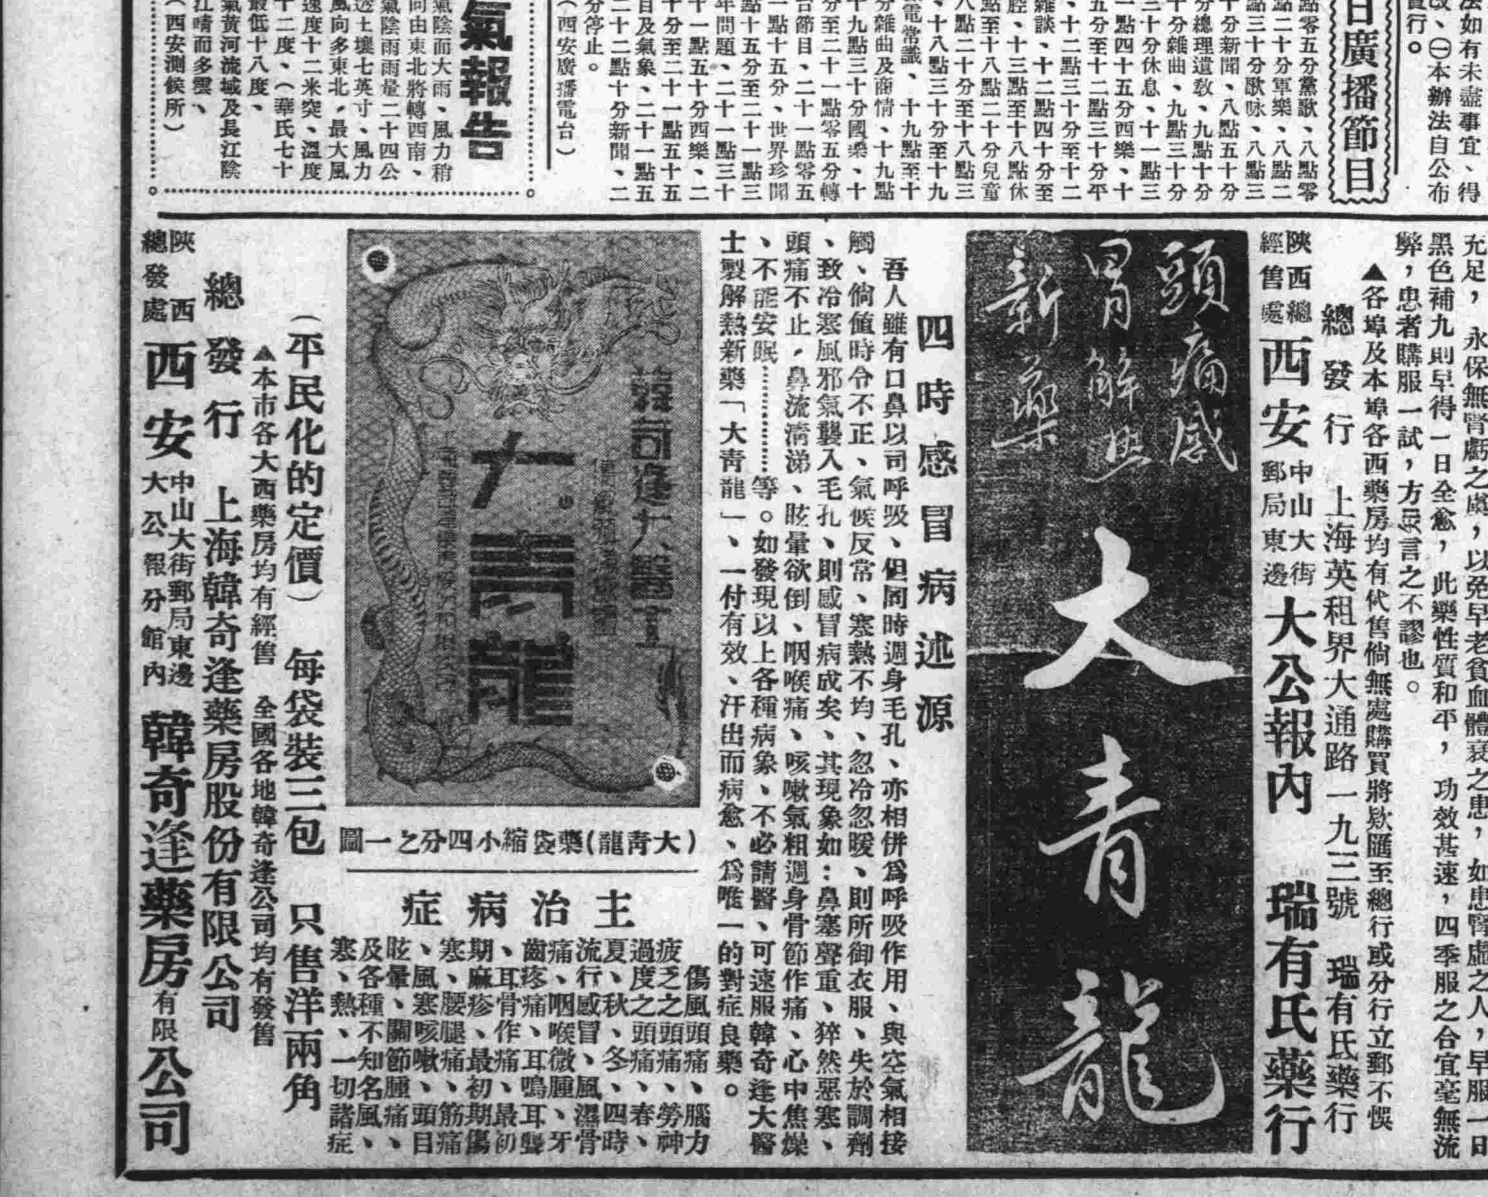 法如有未盡事宜、得
改、㊀本辦法自公布
實行。
日廣播節目
點零五分黨歌、八點零
點二十分軍樂、八點二
點三十分歌咏、八點三
十分新聞、八點五十分
分總理遺敎、九點十分
十分雜曲、九點三十分
三十分休息、十一點三
一點四十五分西樂、十
五分至十二點三十分平
、十二點三十分至十二
雜談、十二點四十分至
腔、十三點至十八點休
點至十八點二十分兒童
八點二十分至十八點三
、十八點三十分至十九
電常識、十九點至十
分雜曲及商情、十九點
十九點三十分國樂、十
分至二十一點零五分轉
台節目、二十一點零五
一點十五分、世界珍聞
點十五分至二十一點三
年問題、二十一點三十
十一點五十分西樂、二
十分至二十一點五十五
目及氣象、二十一點五
二十二點十分新聞、二
分停止。
（西安廣播電台）
氣報告
氣陰而大雨、風力稍
向由東北將轉西南、
氣陰雨雨量二十四公
透土壤七英寸、風力
風向多東北、最大風
速度十二米突、溫度
十二度、（華氏七十
最低十八度、
氣黃河流域及長江陰
江晴而多雲、
（西安測候所）
充足，永保無腎虧之虞，以免早老貧血體衰之患，如患腎虛之人，早服一日
黑色補丸則早得一日全愈，此藥性質和平，功效甚速，四季服之合宜毫無流
弊，患者購服一試，方知言之不謬也。
▲各埠及本埠各西藥房均有代售倘無處購買將欵匯至總行或分行立郵不悞
總發行 上海英租界大通路一九三號 瑞有氏藥行
陝西總經售處 西安 中山大街郵局東邊 大公報內 瑞有氏藥行
頭痛感
冒解熱
新藥
大青龍
四時感冒病述源
吾人雖有口鼻以司呼吸、但同時週身毛孔、亦相併爲呼吸作用、與空氣相接
觸、倘値時令不正、氣候反常、寒熱不均、忽冷忽暖、則所御衣服、失於調劑
、致冷寒風邪氣襲入毛孔、則感冒病成矣、其現象如：鼻塞聲重、猝然惡寒、
頭痛不止，鼻流清涕、眩暈欲倒、咽喉痛、咳嗽氣粗週身骨節作痛、心中焦燥
、不能安眠…………等。如發現以上各種病象、不必請醫、可速服韓奇逢大醫
士製解熱新藥「大靑龍」、一付有效、汗出而病愈、爲唯一的對症良藥。
韓奇逢大醫士
大靑龍
（大靑龍）藥袋縮小四分之一圖
主治病症
傷風頭痛、腦力
疲乏之頭痛、勞神
過度之頭痛、春、
夏、秋、冬、四時
流行感冒、風濕骨
痛、咽喉微腫、牙
齒疼痛、耳鳴耳聾
、耳骨作痛、最初
期麻疹、最初期傷
寒、腰腿痛、筋痛
、風寒咳嗽、頭目
眩暈、關節腫痛、
及各種不知名風、
寒、熱、一切諸症
（平民化的定價） 每袋裝三包 只售洋兩角
▲本市各大西藥房均有經售 全國各地韓奇逢公司均有發售
總發行 上海韓奇逢藥房股份有限公司
陝西總發處 西安 中山大街郵局東邊大公報分館內 韓奇逢藥房有限公司